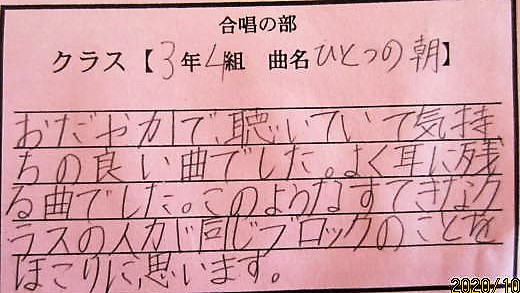 合唱の部
クラス【3年4組 曲名ひとつの朝】
おだやかで、聴いていて気持
ちの良い曲でした。よく耳に残
る曲でした。このようなすてきなク
ラスの人が同じブロックのことを
ほこりに思います。
2020/10